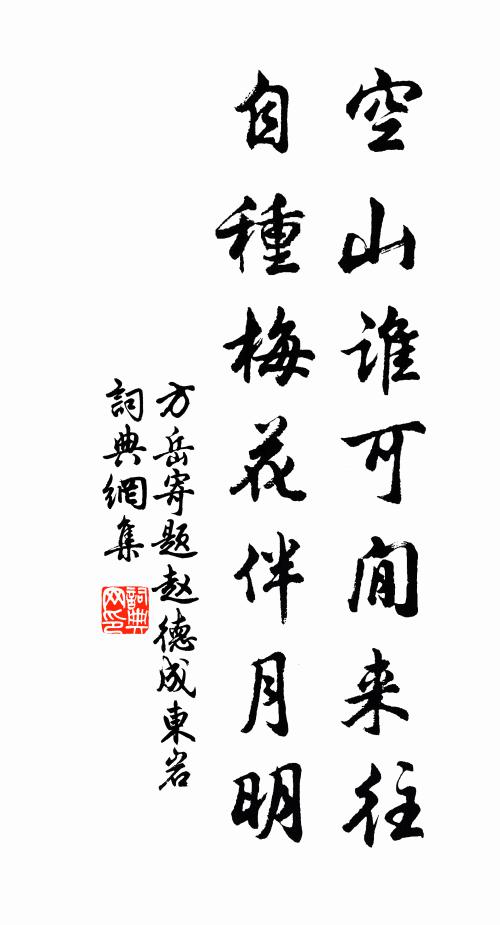 空山谁可閒来往
自種梅花伴月明
方岳寄题赵德成東岩
詞典網集
詞典網印